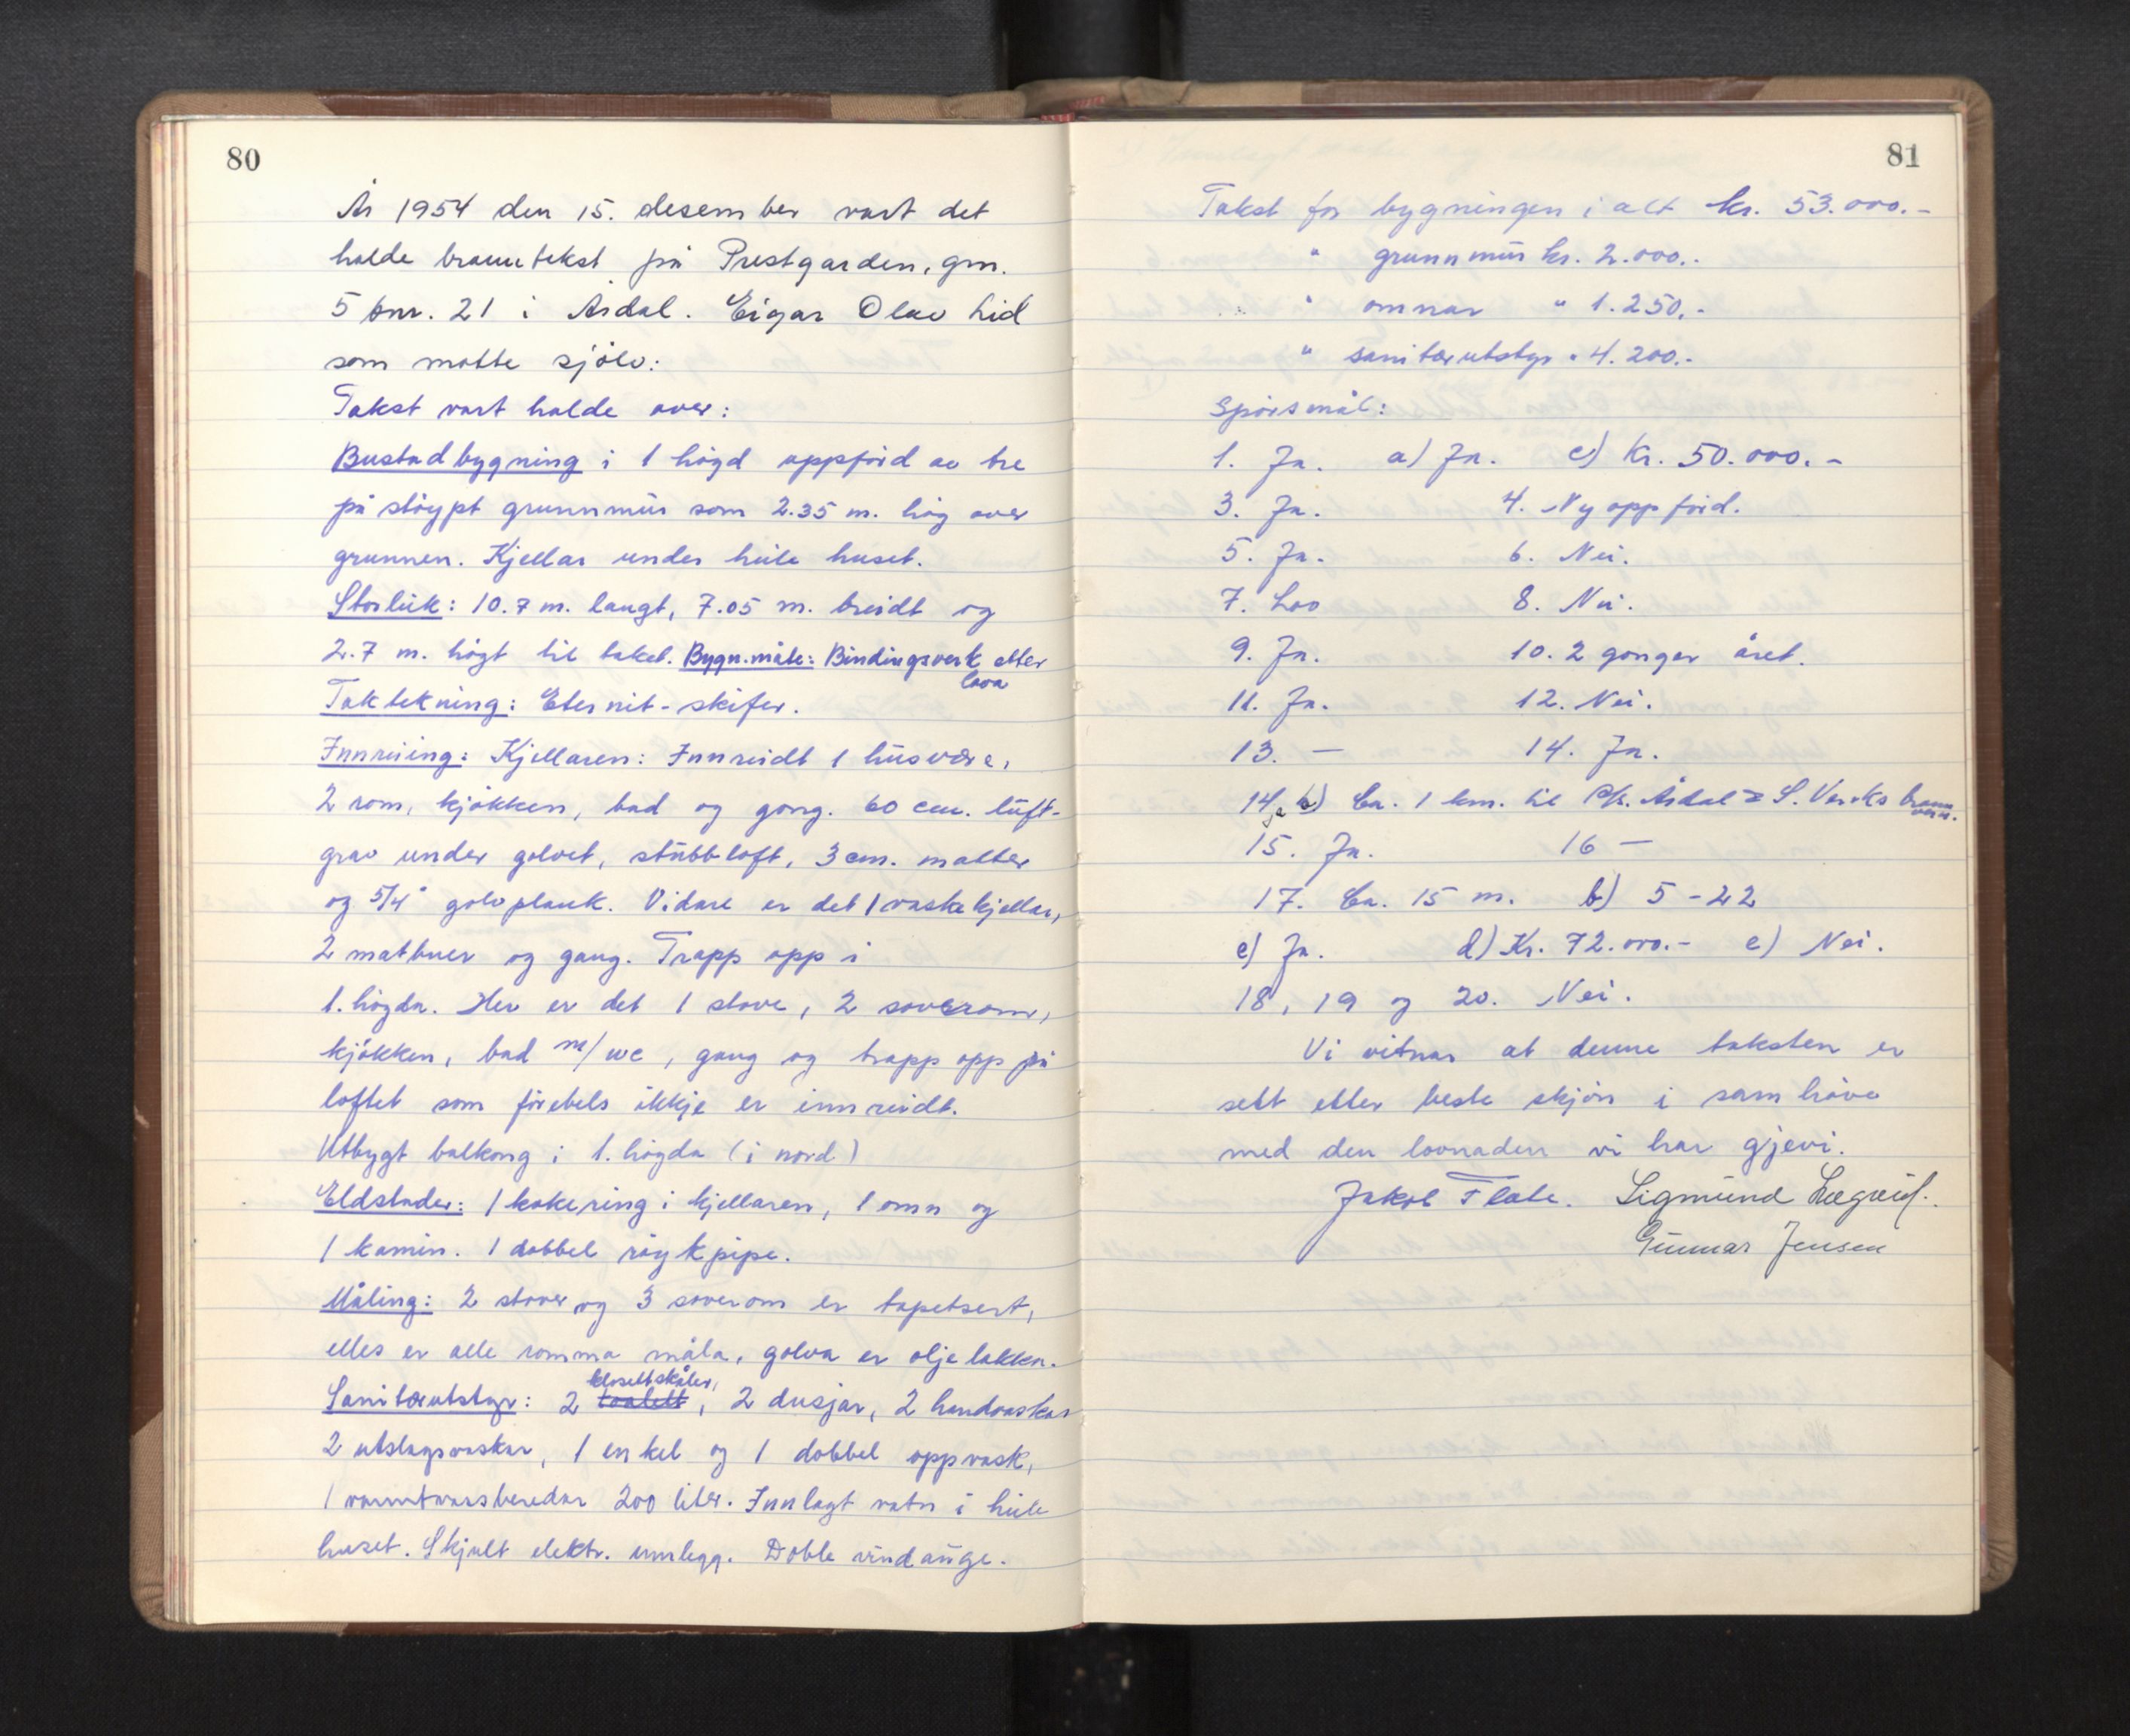 80
År 1954 den 15. desember vart det
halde branntakst på Prestgarden, gnr.
5 bnr. 21 i Årdal. Eigar Olav Lid
som møtte sjølv:
Takst vart halde over:
Bustadbygning i 1 høgd oppførd av tre
på støypt grunnmur som 2.35 m. høg over
grunnen. Kjellar under heile huset.
Storleik: 10.7 m. langt, 7.05 m. breidt og
2.7 m. høgt til taket. Bygn.måte: Bindingsverk etter
lova
Taktekning: Eternit-skifer.
Innreiing: Kjellaren: Innreidt 1 husvære,
2 rom, kjøkken, bad og gong. 60 cm. luft-
grav under golvet, stubbloft, 3 cm. matter
og 5/4" golvplank. Vidare er det 1 vaskekjellar,
2 matbuer og gang. Trapp opp i
1. høgda. Her er det 1 stove, 2 soverom,
kjøkken, bad m/wc, gang og trapp opp på
loftet som førebels ikkje er innreidt.
Utbygt balkong i 1. høgda (i nord)
Eldstader: 1 kokering i kjellaren, 1 omn og
1 kamin. 1 dobbel røykpipe.
Måling: 2 stover og 3 soverom er tapetsert,
elles er alle romma måla, golva er oljelakka.
closettskåler,
Sanitærutstyr: 2 toalett, 2 dusjar, 2 handvaskar
2 utslagsvaskar, 1 enkel og 1 dobbel oppvask,
1 varmtvassberedar 200 liter. Innlagt vatn i heile
huset. Skjult elektr. innlegg. Doble vindauge.
81
Takst for bygningen i alt kr. 53.000.-
" grunnmur kr. 2.000.-
" omnar " 1.250.-
" sanitærutstyr " 4.200.-
Spørsmål:
1. Ja. a) Ja. c) kr. 50.000.-
3. Ja. 4. Ny oppførd.
5. Ja. 6. Nei.
7. Loo 8. Nei.
9. Ja. 10. 2 gonger året.
11. Ja. 12. Nei.
13. — 14. Ja.
14 b) Ca. 1 km. til Årdal & S. Verks brann
vern.
15. Ja. 16 —
17. Ca. 15 m. b) 5-22
c) Ja. d) Kr. 72.000.- e) Nei.
18, 19 og 20. Nei.
Vi vitnar at denne taksten er
sett etter beste skjøn i samhøve
med den lovnaden vi har gjevi.
Jakob Flate. Sigmund Lægreid.
Gunnar Jensen